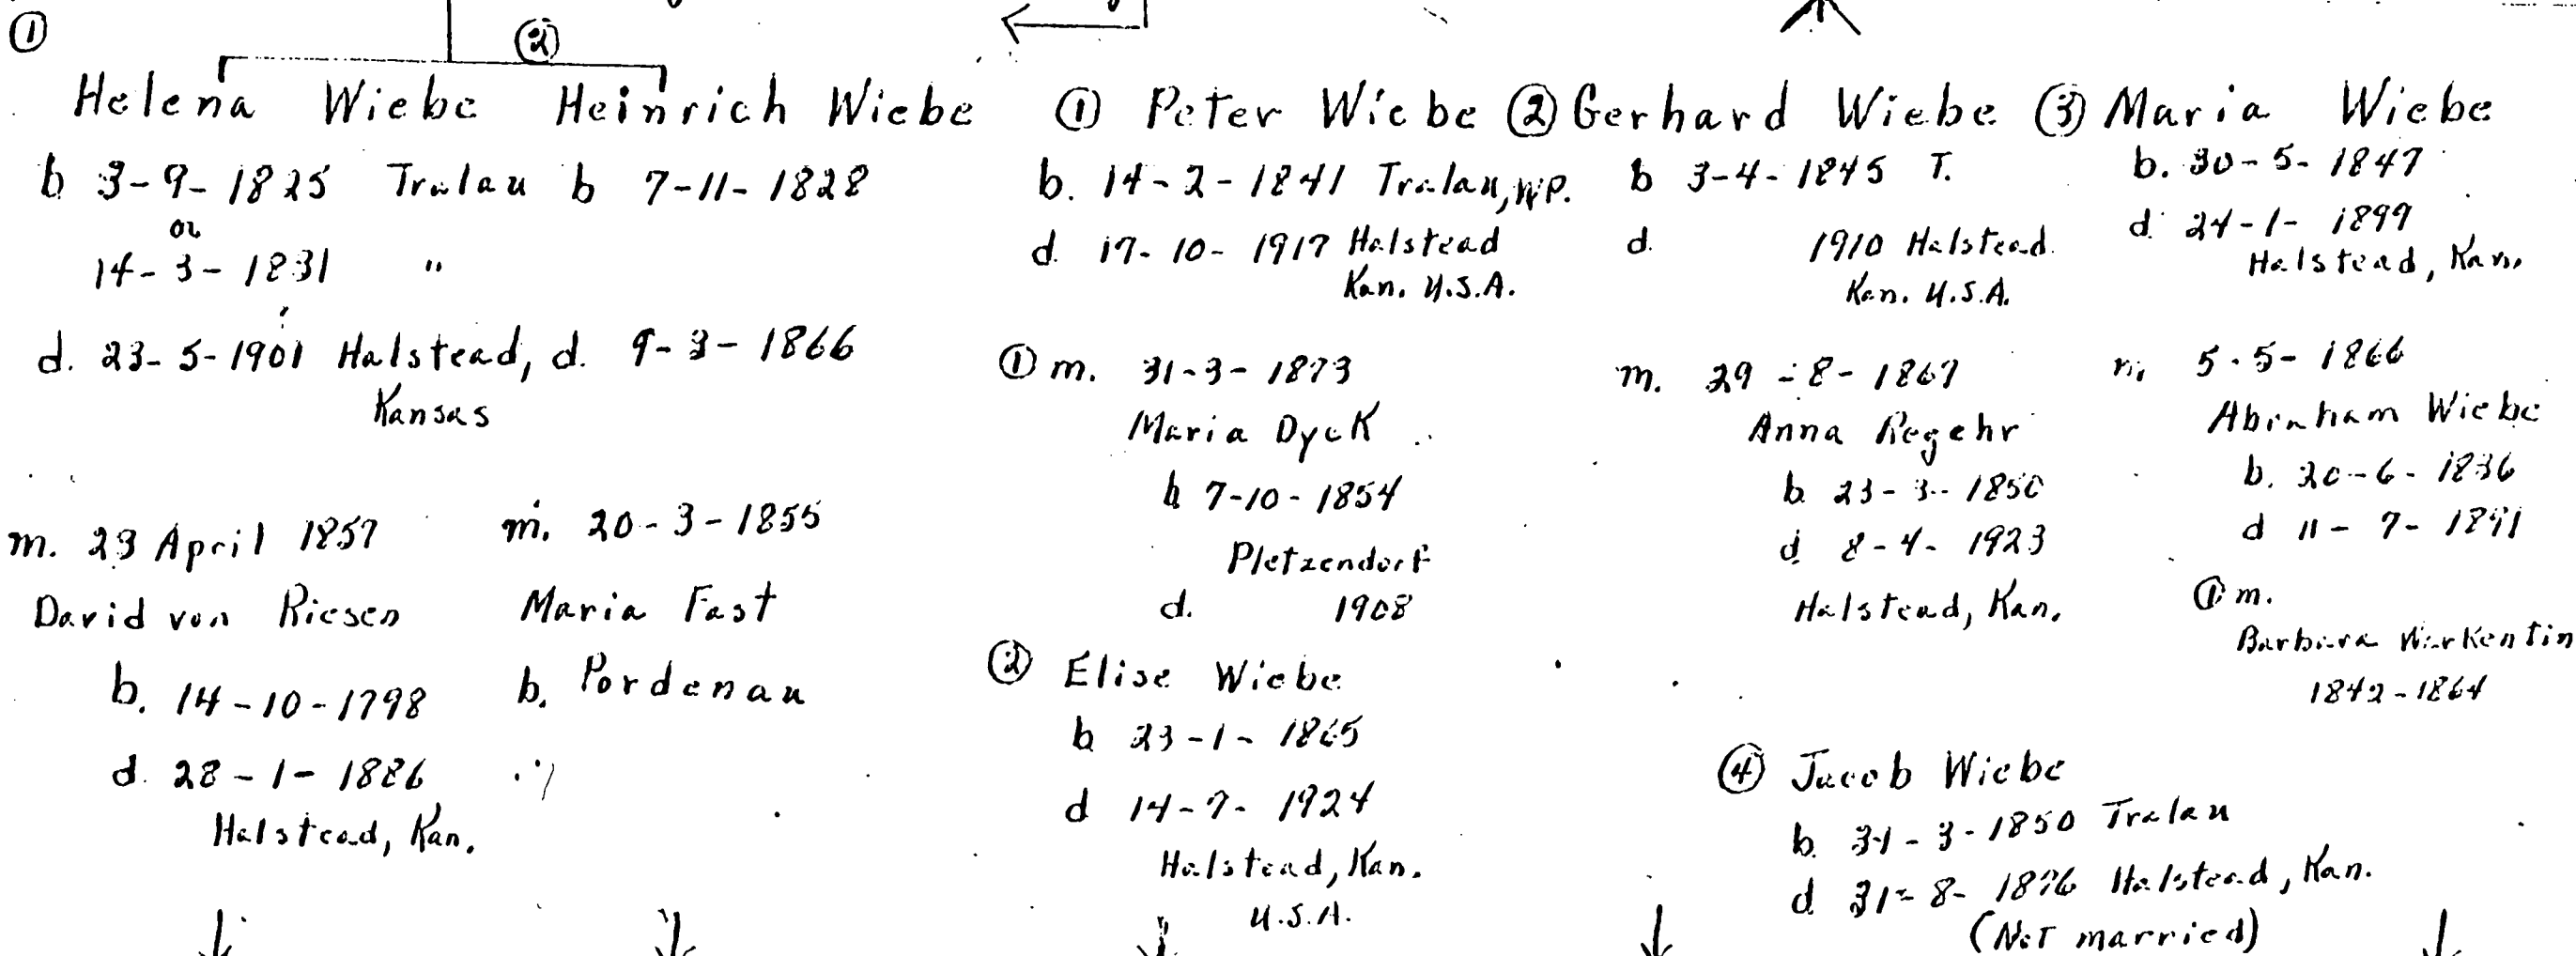 ①
②
Helena Wiebe
b 3-9-1825 Tralau
or
14-3-1831 "
d. 23-5-1901 Halstead,
Kansas
m. 23 April 1857
David von Riesen
b. 14-10-1798
d. 28-1-1886
Halstead, Kan.
Heinrich Wiebe
b 7-11-1828
d. 9-3-1866
m. 20-3-1855
Maria Fast
b. Pordenau
① Peter Wiebe
b. 14-2-1841 Tralau, WP.
d. 17-10-1917 Halstead
Kan. U.S.A.
① m. 31-3-1873
Maria Dyck
b 7-10-1854
Pletzendorf
d. 1908
② Elise Wiebe
b 23-1-1865
d 14-7-1924
Halstead, Kan.
U.S.A.
② Gerhard Wiebe
b 3-4-1845 T.
d. 1910 Halstead
Kan. U.S.A.
m. 29-8-1867
Anna Regehr
b. 23-3-1850
d. 8-4-1923
Halstead, Kan.
③ Maria Wiebe
b. 30-5-1847
d. 24-1-1899
Halstead, Kan.
m. 5-5-1866
Abraham Wiebe
b. 20-6-1836
d 11-7-1891
① m.
Barbara Warkentin
1842-1864
④ Jacob Wiebe
b. 31-3-1850 Tralau
d. 31-8-1876 Halstead, Kan.
(Not married)